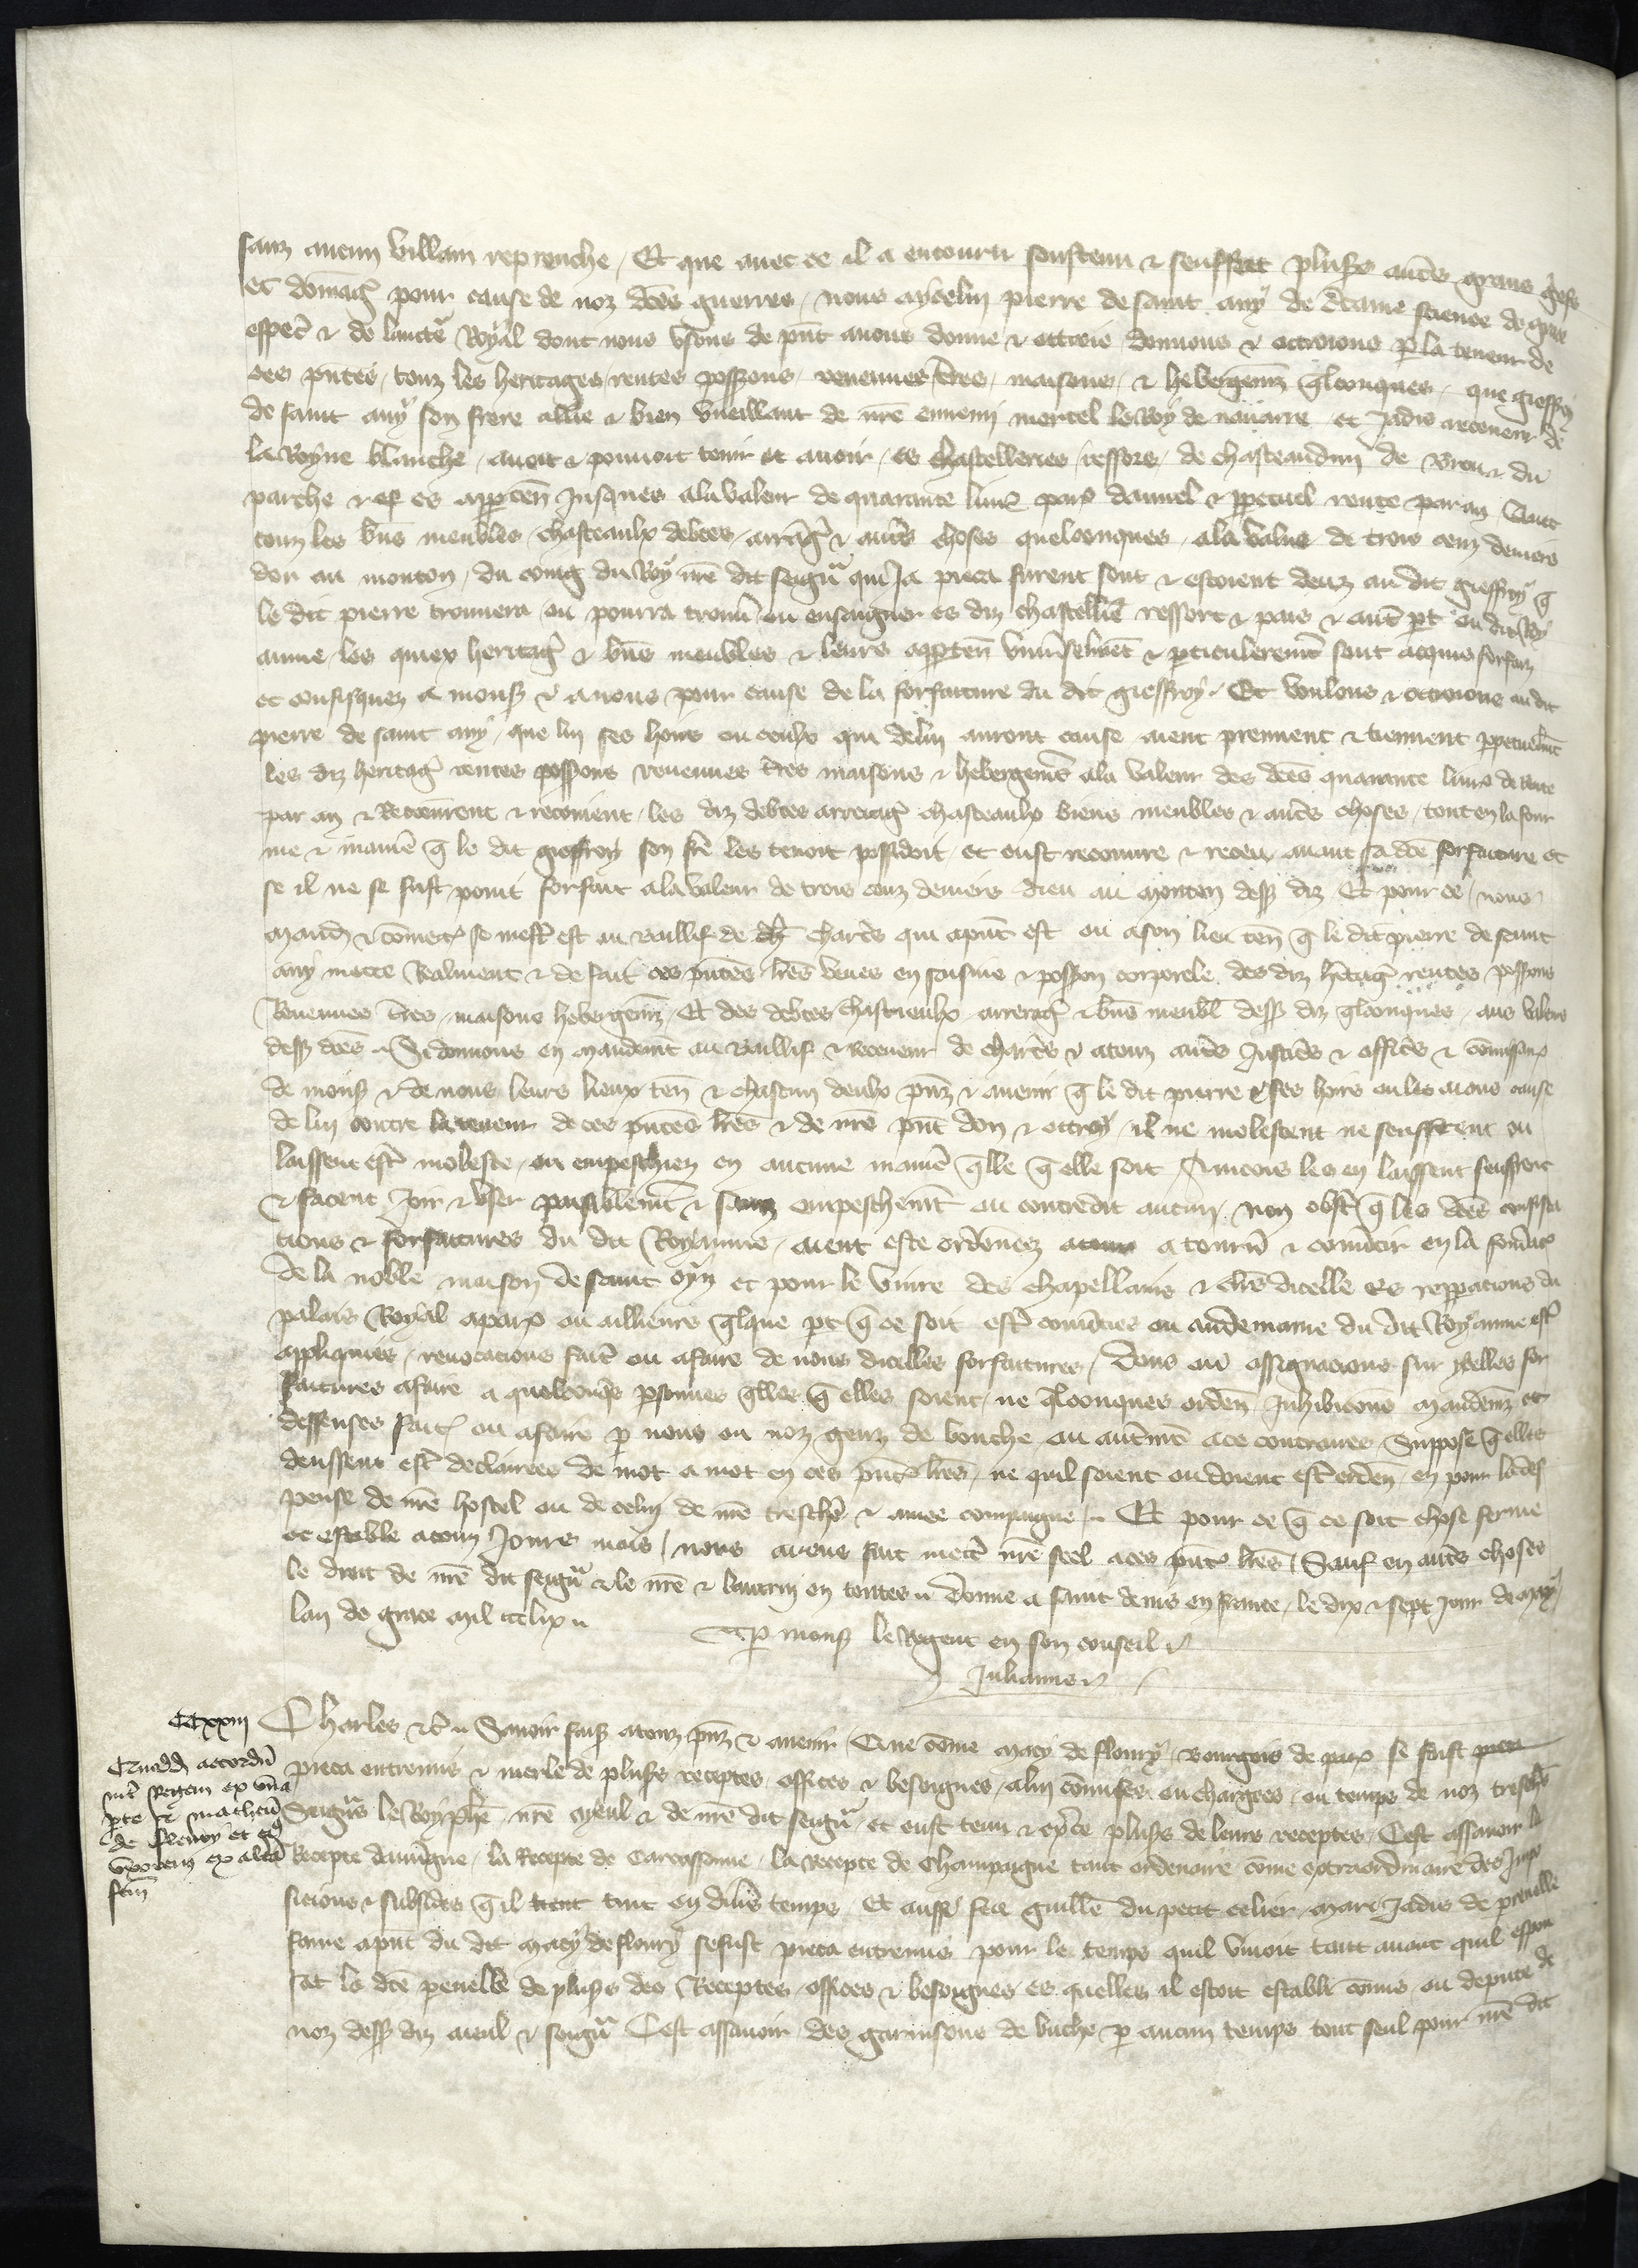 sanz aucun villain reprouche / Et que auec ce il a encouru soustenu & souffert plus's autres griefs
et domag' pour cause de noz dces guerres / nous aycelui pierre de saint any de ctaine science de grace
especl & de lauctte Royal dont nous vsons de pnt auons donne & ottroie donnons & ottroions p la teneur de
ces pntes / touz les heritages / rentes possons / reuenues tres / maisons / & hebergemz qlconques / que gieffroy
de saint any son frere allie & bien vueillant de nre ennemi mortel le Roy de nauarre et Jadis receueur de
la Royne blanche / auoit & pouuoit tenir et auoir / es chastelleries / ressors / de chasteaudun de & du
perche & es apptenn Jusques ala valeur de quarante liurs pars dannuel & ppetuel rente par an Auec
touz les bns meubles / chasteaulx debtes / arrag' & autres choses quelconques / ala value de trois cenz deniers
dor au mouton / du coing du Roy nre dit seigur qui Ja pieca furent sont & estoient deuz au dit gieffroy q
le dit pierre trouuera ou pourra trouu ou enseigner es diz chastelle ressort & pais & aut pt ou dit Roy
aume / les quiex heritag' & bns meubles & leurs apptenn vniuselmt & pticulieremt sont acquis forfaiz
et confisquez a mons & a nous pour cause de la forfaiture du dit gieffroy / Et voulons & ottroions au dit
pierre de saint any / que lui ses hoirs ou ceulx qui delui auront cause aient preingnent & tiennent ppetuelmt
les diz heritag' rentes possons reuenues tres maisons & hebergemts ala valeur des dces quarante liurs de rente
par an & Recouurent & recoiuent / les diz debtes arrerag' chasteaulx biens meubles & autres choses / tout en la four
me & maniere q le dit gieffroy son fre les tenoit possidoit / et eust recouure & receu auant sa dce forfaiture et
se il ne se fust point forfait ala valeur de trois cenz deniers dieu au mouton dess diz Et pour ce / nous
mandons & comettons se mest est au Baillif de chartres qui apnt est ou a son lieu ten q le dit pierre de saint
any mette Realment & de fait ces pntes lres veues en saisine & posson corporele des diz hitag' rentes possons
Reuenues tres / maisons hebergemz / Et des debtes chastieaulx arrerag' & bns meubl dess diz qlconques / aus valeurs
dess dces / Si donnons en mandemt au Baillif & Receueur de chartres & atouz autres Justiciers & officiers & comissairs
de mons & de nous / leurs lieux ten & chascun deulx pnz & auenir q le dit pierre ses hoirs ou les aians cause
de lui contre la teneur de ces pntes lres & de nre pnt don & ottroy / il ne molestent ne seuffrent ou
laissent estre moleste / ou empeschiez en aucune maniere qlle q elle soit / Aincois les en laissent souffrent
& facent Joir & vser paisiblemt & sanz empeschemt ou contredit aucun / non obst q les dces confisca
tions & forfaitures du dit Royaume / aient este ordonnez a tourner & conuertir en la fondacion
de la noble maison de saint oyn et pour le viure des chapellains & clers dicelle es reppacions du
palais Royal apars ou ailleurs qlque pt q ce soit estre conuerties ou au demaine du dit Royaume estre
appliquies / reuocacions faites ou afaire de nous dicelles forfaitures / dons ou assignacions sur ycelles for
faitures afaire a quelconqs psonnes qlles q elles soient / ne qlconques ordenn Inhibicons mandemz et
deffenses faits ou afaire p nous ou noz genz de bouche ou autremt ace contraires Suppose q elles
deussent estre declairees de mot a mot en ces pntes lres / ne quil soient ou doient estre ordenn / en pour lades
pense de nre hostel ou de celui de nre treschre & amee compaigne / Et pour ce q ce soit chose ferme
et estable atouz Jours mais / nous auons fait mectre nre seel aces pntes lres / Sauf en autres choses
le droit de nre dit seigur & le nre & lautrui en toutes / Donne a saint denis en france / le dix & sept Jour de may
lan de grace mil ccclix
p mons le Regent en son conseil
Julianus
CCxxiii
Charles &c Sauoir fais atouz pnz & auenir / Que come macy de floury / Bourgois de pars se fust
pieca entremis & mesle de pluss receptes / offices & besoignes / alui comises ou chargees / ou temps de noz treschs
Seigurs le Roy phe nre ayeul & de nre dit seigur / et eust tenu & pluss de leurs receptes / Cest assauoir la
Recepte dauuigne / la Recepte de Carcassonne / la recepte de Champaigne tant ordenaire come extraordinaire des Jmpo
sicions & subsides q il tint en diuss temps / Et aussi feu guille du petit celier / mari Jadis de prenelle
fame apnt du dit macy de floury se fust pieca entremis pour le temps quil viuoit tant auant quil espou
sat la dce penelle de pluss des Receptes / offices & besoignes es quelles il estoit establi comis ou depute de
noz dess diz aieul & seigur Cest assauoir des garnisons de buche p aucun temps tout seul pour nre dit
Quedd accordum
int Regem ex vna
pte & matheum
de floury et eius
vxorem ex altera
fcm